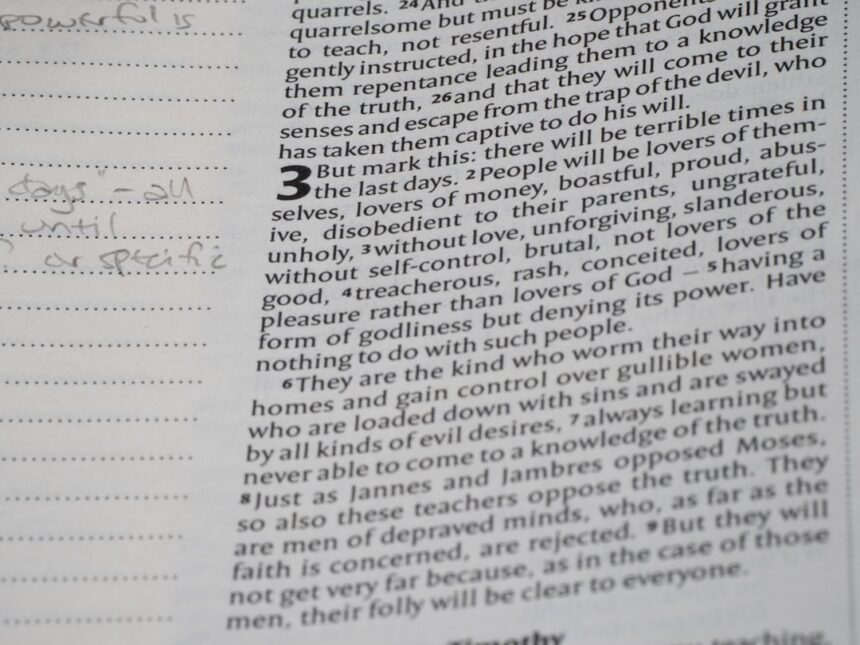 powerful is
days" - all
until
or specific
quarrels. 24And
quarrelsome but must be
to teach, not resentful. 25Oppon
gently instructed, in the hope that God will grant
them repentance leading them to a knowledge
of the truth, 26and that they will come to their
senses and escape from the trap of the devil, who
has taken them captive to do his will.
3 But mark this: there will be terrible times in
the last days. 2People will be lovers of them-
selves, lovers of money, boastful, proud, abus-
ive, disobedient to their parents, ungrateful,
unholy, 3without love, unforgiving, slanderous,
without self-control, brutal, not lovers of the
good, 4treacherous, rash, conceited, lovers of
pleasure rather than lovers of God – 5having a
form of godliness but denying its power. Have
nothing to do with such people.
6They are the kind who worm their way into
homes and gain control over gullible women,
who are loaded down with sins and are swayed
by all kinds of evil desires, 7always learning but
never able to come to a knowledge of the truth.
8Just as Jannes and Jambres opposed Moses,
so also these teachers oppose the truth. They
are men of depraved minds, who, as far as the
faith is concerned, are rejected. 9But they will
not get very far because, as in the case of those
men, their folly will be clear to everyone.
Timothy
teaching,